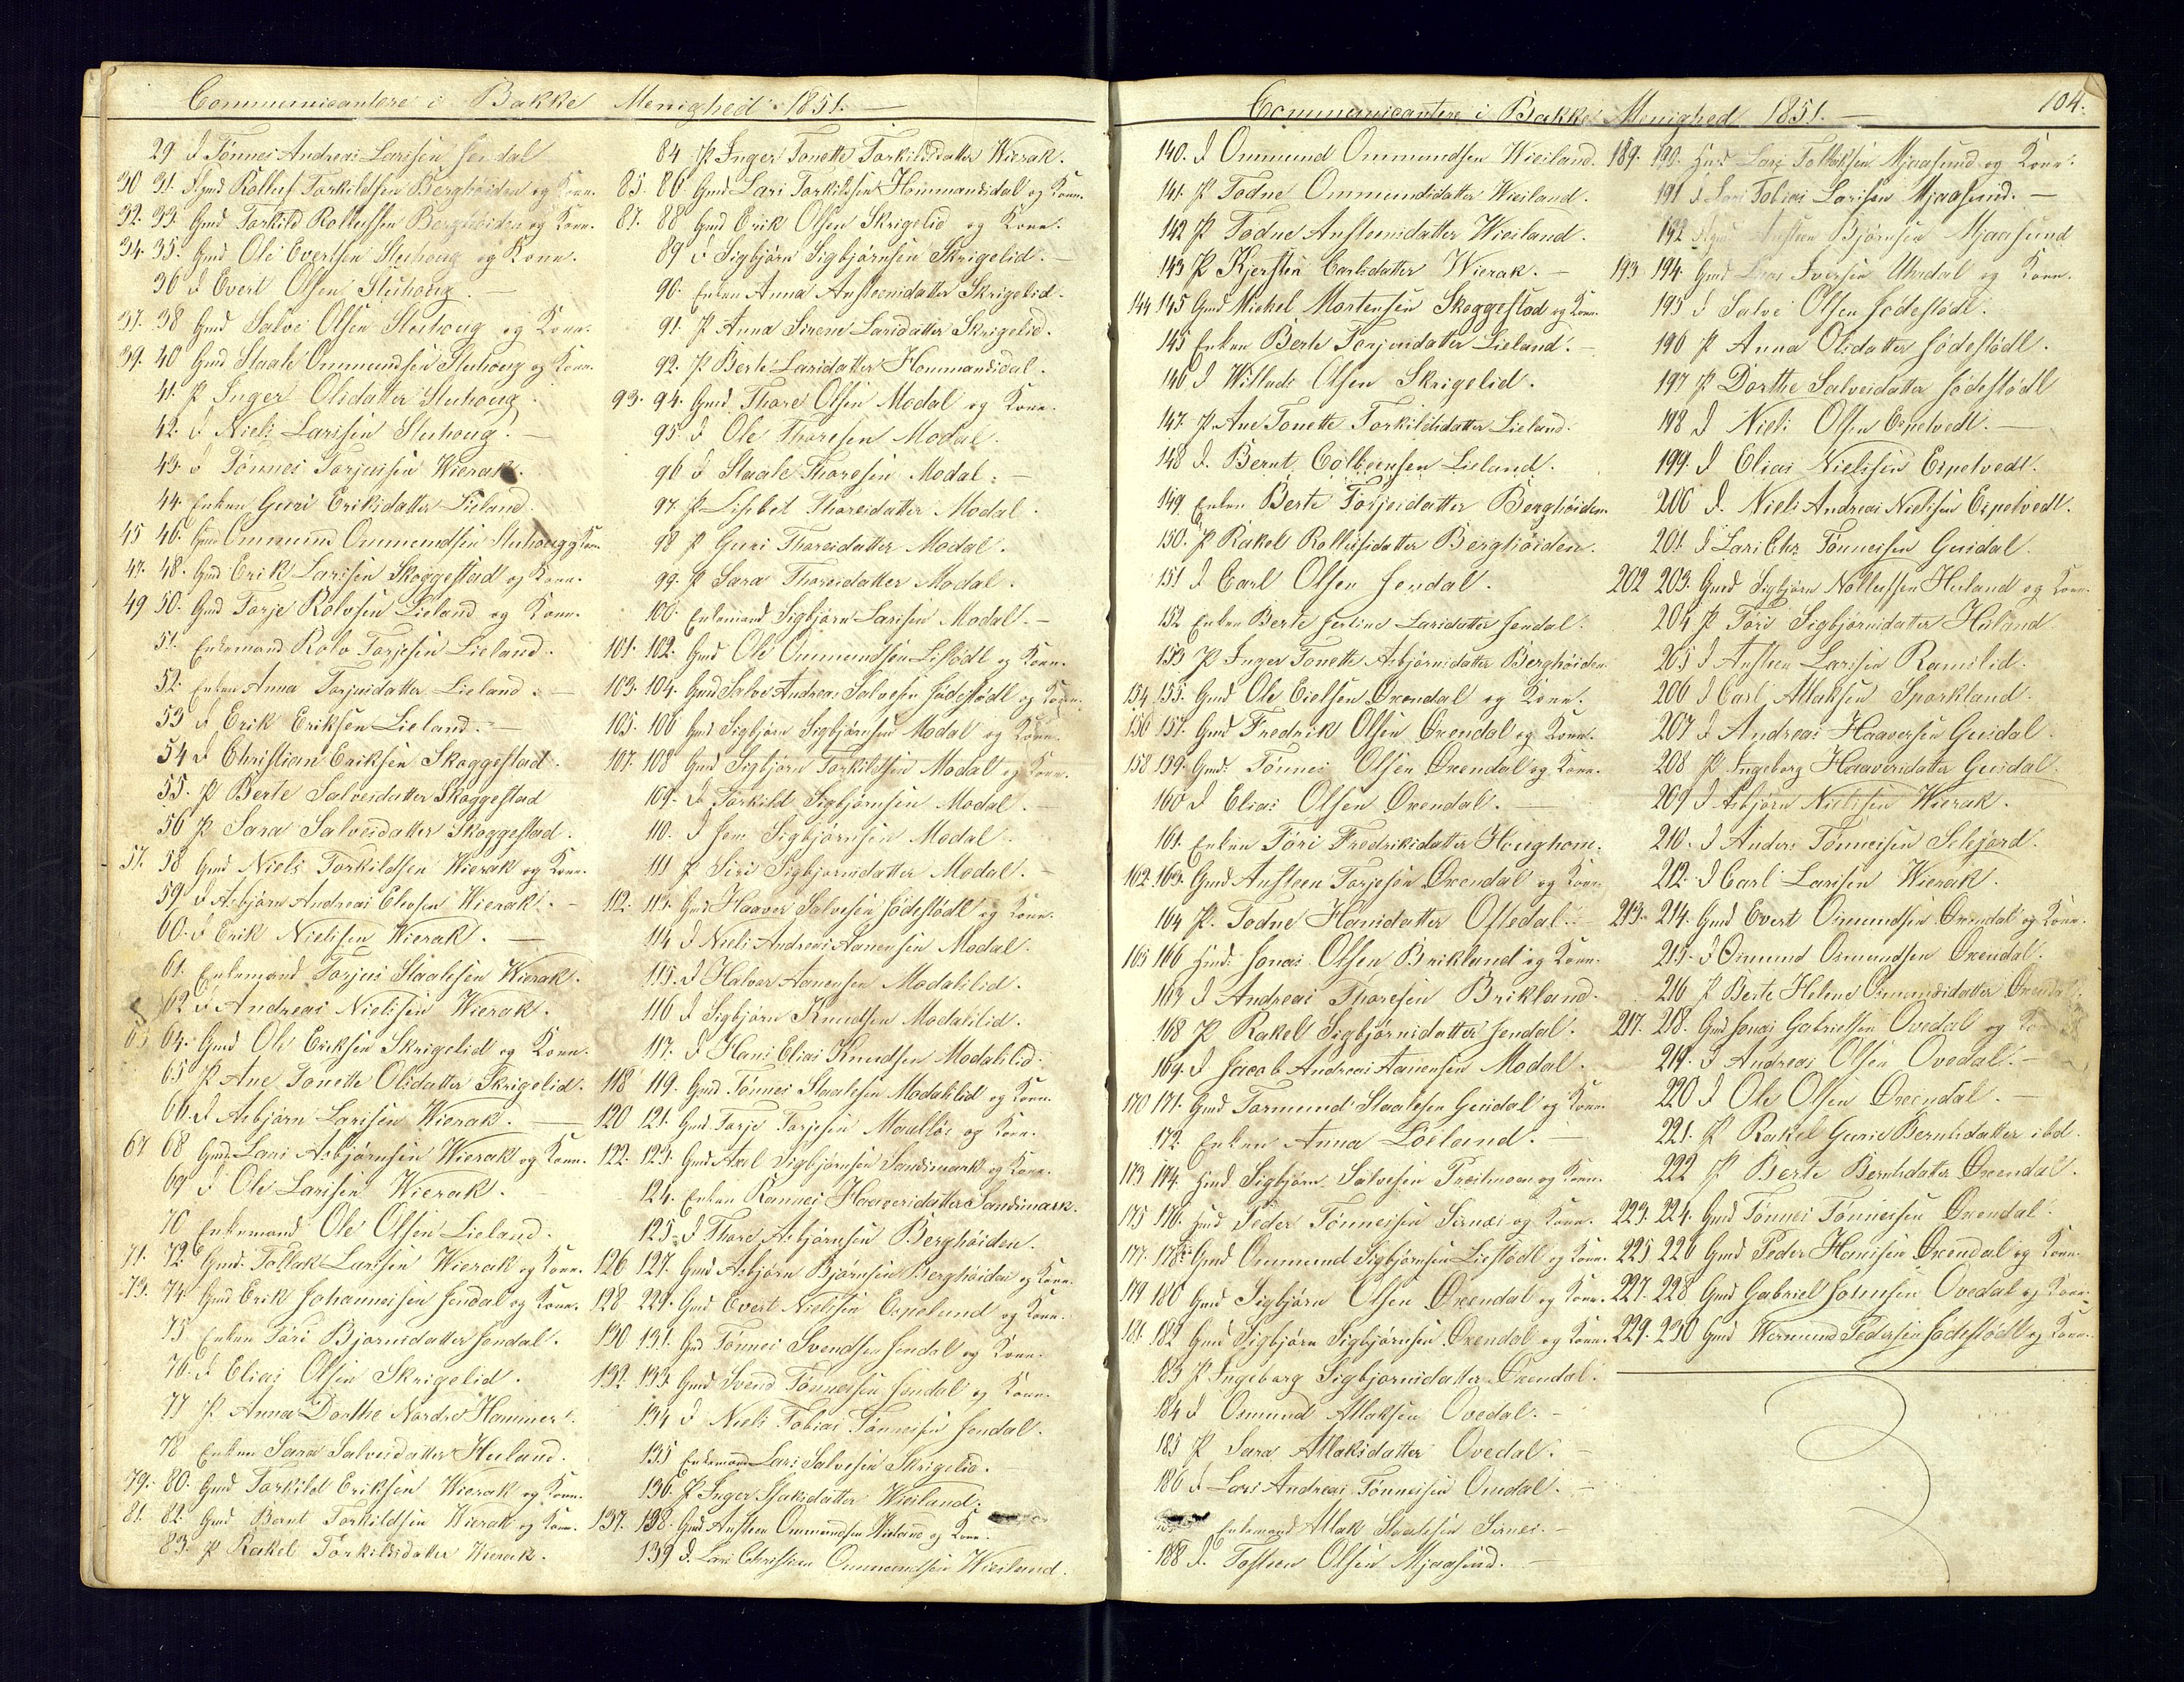 Communicantere i Bakke Menighed 1851. —
29 J Tønnes Andreas Larssen Jendal
30 31. Gmd Rolleif Torkildsen Berghøiden og Kone.
32. 33. Gmd Torkild Rolleifsen Berghøiden og Kone.
34. 35. Gmd Ole Evertsen Sluhoug og Kone.
36 J Evert Olsen Sluhoug. —
37. 38 Gmd Salve Olsen Sluhoug og Kone.
39. 40 Gmd Staale Ommundsen Sluhoug og Kone.
41. P Inger Olsdatter Sluhoug.
42. J Niels Larssen Sluhoug. —
43. J Tønnes Torjussen Wierak.
44. Enken Guri Eriksdatter Lieland.
45 46. Gmd Ommund Ommundsen Sluhoug og Kone.
47. 48. Gmd Erik Larssen Skoggestad og Kone.
49 50. Gmd Torje Rolvsen Lieland og Kone.
51. Enkemand Rolv Torjesen Lieland.
52. Enken Anna Torjusdatter Lieland. —
53 J Erik Eriksen Lieland. —
54 J Christian Eriksen Skoggestad.
55. P Berte Salvesdatter Skoggestad
56 P Sara Salvesdatter Skoggestad.
57. 58 Gmd Niels Torkildsen Wierak og Kone.
59. J Asbjørn Andreas Elevsen Wierak. —
60. J Erik Nielssen Wierak. —
61. Enkemand Torjus Staalesen Wierak.
62 J Andreas Nielssen Wierak.
63 64. Gmd Ole Eriksen Skrigelid og Kone.
65 P Ane Tonette Olsdatter Skrigelid.
66. J Asbjørn Larssen Wierak. —
67 68 Gmd Lars Asbjørnsen Wierak og Kone.
69 J Ole Larssen Wierak.
70 Enkemand Ole Olsen Lieland.
71. 72. Gmd. Tollak Larssen Wierak og Kone.
73. 74. Gmd Erik Johannessen Jendal og Kone.
75 Enken Tøri Bjørnsdatter Jendal.
76. J Elias Olsen Skrigelid.
77 P. Anna Dorthe Nordre Hammer.
78 Enken Sara Salvesdatter Heiland.
79. 80. Gmd Torkild Eriksen Wierak og Kone.
81. 82. Gmd Bent Torkildsen Wierak og Kone.
83. P Rakel Torkildsdatter Wierak.
84 P Inger Tonette Torkildsdatter Wierak.
85. 86 Gmd Lars Torkildsen Hommandsdal og Kone.
87. 88 Gmd Erik Olsen Skrigelid og Kone.
89 J Sigbjørn Sigbjørnsen Skrigelid. —
90. Enken Anna Anstensdatter Skrigelid.
91. P Anna Sirene Larsdatter Skrigelid.
92. P Berte Larsdatter Hommandsdal.
93. 94. Gmd. Thore Olsen Modal og Kone.
95. J Ole Thoresen Modal.
96 J Staale Thoresen Modal. —
97. P Lisebet Thoresdatter Modal.
98 P Guri Thoresdatter Modal.
99. P Sara Thoresdatter Modal.
100. Enkemand Sigbjørn Larssen Modal. —
101. 102. Gmd Ole Ommundsen Listødl og Kone.
103. 104. Gmd Salve Andreas Salvesen Fødestødl og Kone.
105. 106 Gmd Sigbjørn Sigbjørnsen Modal og Kone.
107. 108 Gmd Sigbjørn Torkildsen Modal og Kone.
109. J Torkild Sigbjørnsen Modal. —
110. J Jens Sigbjørnsen Modal.
111 P Siri Sigbjørnsdatter Modal. —
112. 113. Gmd Haaver Salvesen Fødestødl og Kone.
114 J Niels Andreas Aanensen Modal.
115. J Halvor Aanensen Modalslid.
116 J Sigbjørn Knudsen Modalslid.
117. J Hans Elias Knudsen Modalslid.
118 119. Gmd. Tønnes Staalesen Modalslid og Kone.
120 121. Gmd. Torje Torjesen og Kone.
122. 123. Gmd Axel Sigbjørnsen Sandsmark og Kone.
124. Enken Rannei Haaversdatter Sandsmark.
125. J Thore Asbjørnsen Berghøiden.
126 127. Gmd Asbjørn Bjørnsen Berghøiden og Kone.
128 229. Gmd Evert Nielssen Espelund og Kone.
130 131. Gmd Tønnes Svendsen Jendal og Kone.
132. 133. Gmd Svend Tønnessen Jendal og Kone.
134 J Niels Tobias Tønnessen Jendal.
135 Enkemand Lars Salvesen Skrigelid. —
136. P Inger Isaksdatter Wieiland.
137. 138. Gmd Ansteen Ommundsen Wieiland og Kone.
139 J. Lars Christian Ommundsen Wieiland.
Communicantere i Bakke Menighed 1851. —
104.
140. J Ommund Ommundsen Wieiland.
141. P Todne Ommundsdatter Wieiland.
142 P Todne Ansteensdatter Wieiland.
143 P Kjersten Carlsdatter Wierak. —
144 145 Gmd Mickel Mortensen Skoggestad og Kone.
145 Enken Berte Torjusdatter Lieland. —
146 J Willads Olsen Skrigelid.
147. P. Ane Tonette Torkildsdatter Lieland.
148 J. Bernt Colbjørnsen Lieland.
149 Enken Berte Torjesdatter Berghøiden.
150. P Rakel Rolleifsdatter Berghøiden.
151 J Carl Olsen Jendal.
152 Enken Berte Larsdatter Jendal.
153 P Inger Tonette Asbjørnsdatter Berghøiden.
154 155. Gmd Ole Eielsen Øxendal og Kone.
156 157. Gmd Fredrik Olsen Øxendal og Kone.
158 159. Gmd. Tønnes Olsen Øxendal og Kone.
160 J Elias Olsen Øxendal. —
161. Enken Tøri Fredriksdatter Houghom.
162. 163. Gmd Ansteen Torjesen Øxendal og Kone.
164 P. Todne Hansdatter Oftedal. —
165 166 Hmd. Jonas Olsen Brikland og Kone.
167 J Andreas Thoresen Brikland.
168 P Rakel Sigbjørnsdatter Jendal.
169. J Jacob Andreas Aanensen Modal.
170 171. Gmd Tormund Staalesen Gusdal og Kone.
172. Enken Anna Löiland. —
173 174. Hmd. Sigbjørn Salvesen og Kone.
175 176. Hmd Peder Tønnessen Sirnes og Kone.
177. 178. Gmd Ommund Sigbjørnsen Liestødl og Kone.
179 180 Gmd Sigbjørn Olsen Øxendal og Kone.
181. 182 Gmd Sigbjørn Sigbjørnsen Øxendal og Kone.
183 P. Ingeborg Sigbjørnsdatter Øxendal.
184 J Osmund Atlaksen Ovedal. —
185 P Sara Atlaksdatter Ovedal. —
186 J Lars Andreas Tønnessen Omdal. —
Enkemand Atlak Staalesen Sirnes. —
188 J. Tosteen Olsen Mjaasund. —
189. 190. Hmd Lars Tollaksen Mjaasund og Kone.
191 J Lars Tobias Larssen Mjaasund. —
192 Ansteen Bjørnsen Mjaasund
193 194. Gmd Iversen og Kone.
195 J Salve Olsen Fødestødl.
196 P Anna Olsdatter Fødestødl.
197 P Dorthe Salvesdatter Fødestødl
198 J Niels Olsen Espetvedt. —
199. J Elias Nielssen Espetvedt.
200 J. Niels Andreas Nielssen Espetvedt.
201. J Lars Chr. Tønnessen Gusdal.
202 203. Gmd Sigbjørn Rolleifsen Heiland og Kone.
204 P Tøri Sigbjørnsdatter Heiland
205 J Ansteen Larssen Ramslid.
206 J Carl Atlaksen Sporkland.
207 J Andreas Haaversen Gusdal.
208 P Ingeborg Haaversdatter Gusdal.
209 J Asbjørn Nielssen Wierak.
210. J Anders Tønnessen Selejord.
212. J Carl Larssen Wierak.
213. 214. Gmd Evert Osmundsen Øxendal og Kone.
215. J Osmund Osmundsen Øxendal.
216 P Berte Helene Osmundsdatter Øxendal.
217. 218. Gmd Jonas Gabrielsen Ovedal og
219. J Andreas Olsen Ovedal. —
220 J Ole Olsen Øxendal. —
221. P Rakel Gurie Berntsdatter ibd.
222 P Berte Berntsdatter Øxendal.
223. 224. Gmd Tønnes Tønnessen Øxendal.
225 226 Gmd Peder Hanssen Øxendal og Kone.
227. 228 Gmd Gabriel Ovedal og Kone.
229. 230 Gmd Wermund Pedersen Fødestødl og Kone.